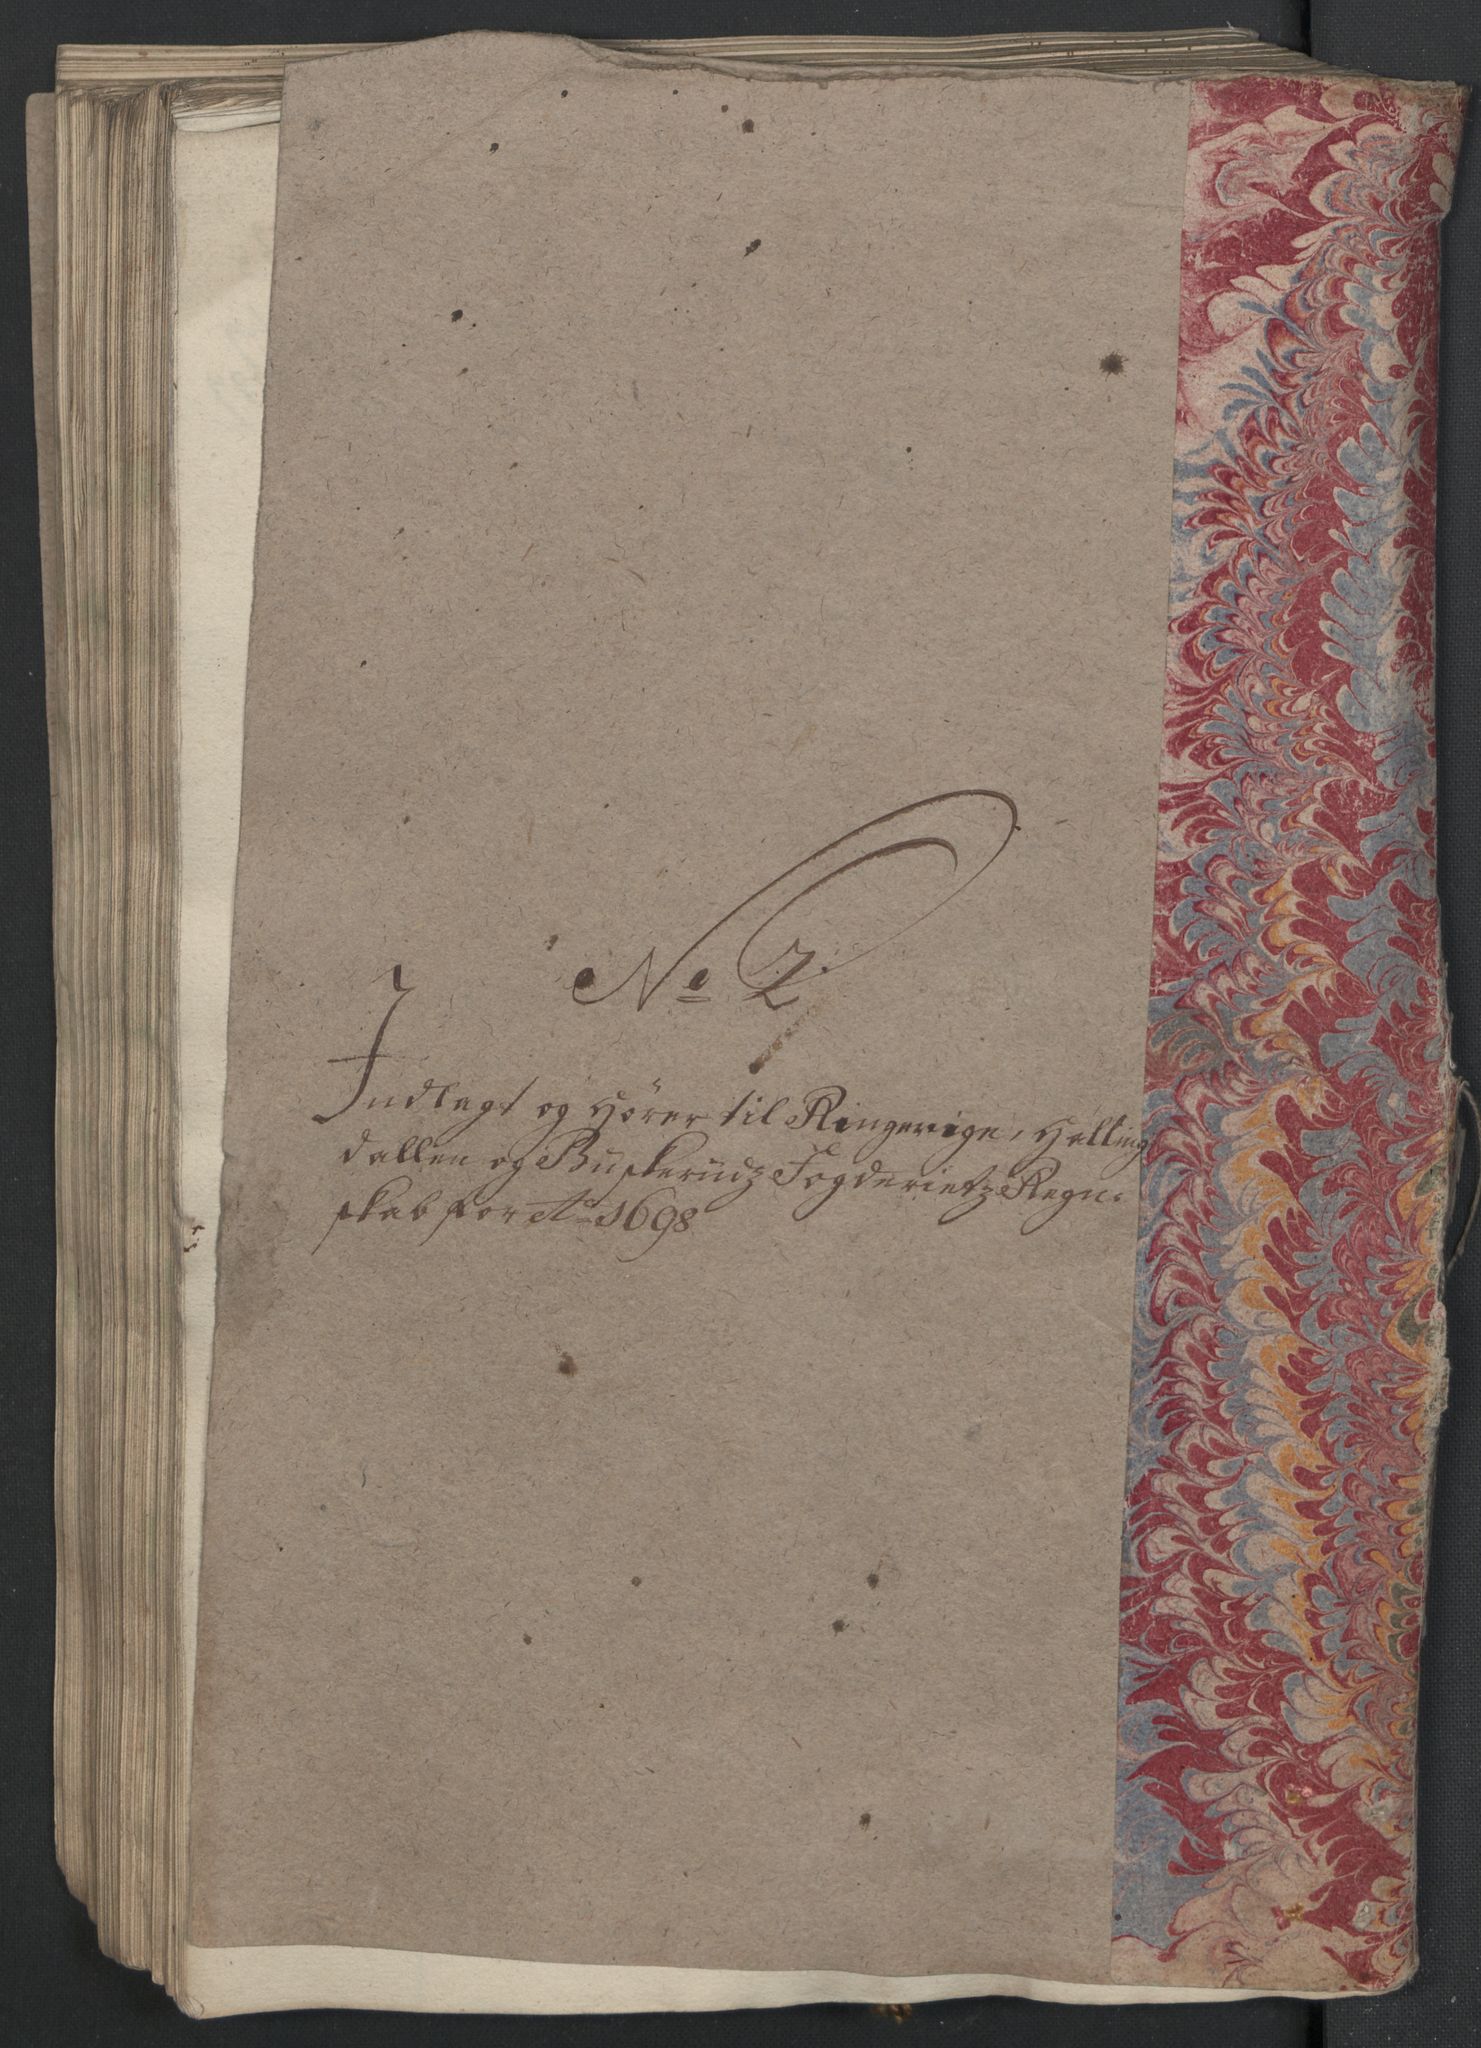 No 2.
Indlagt og Hörer til Ringerige, Halling
dallen og Buskerudz Fogderietz Regn:
skab for Ao 1698